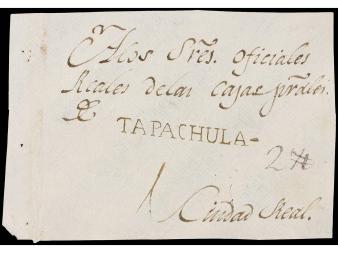 A los Sres. Oficiales
Reales de las Cajas prales.
De
TAPACHULA-
1
Ciudad Real.